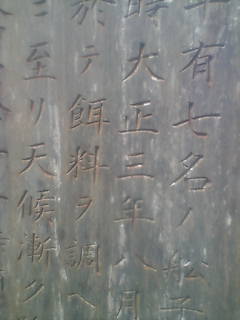 有七名ノ舩子
時大正三年八月
於テ餌料ヲ調ヘ
ニ至リ天候漸ク